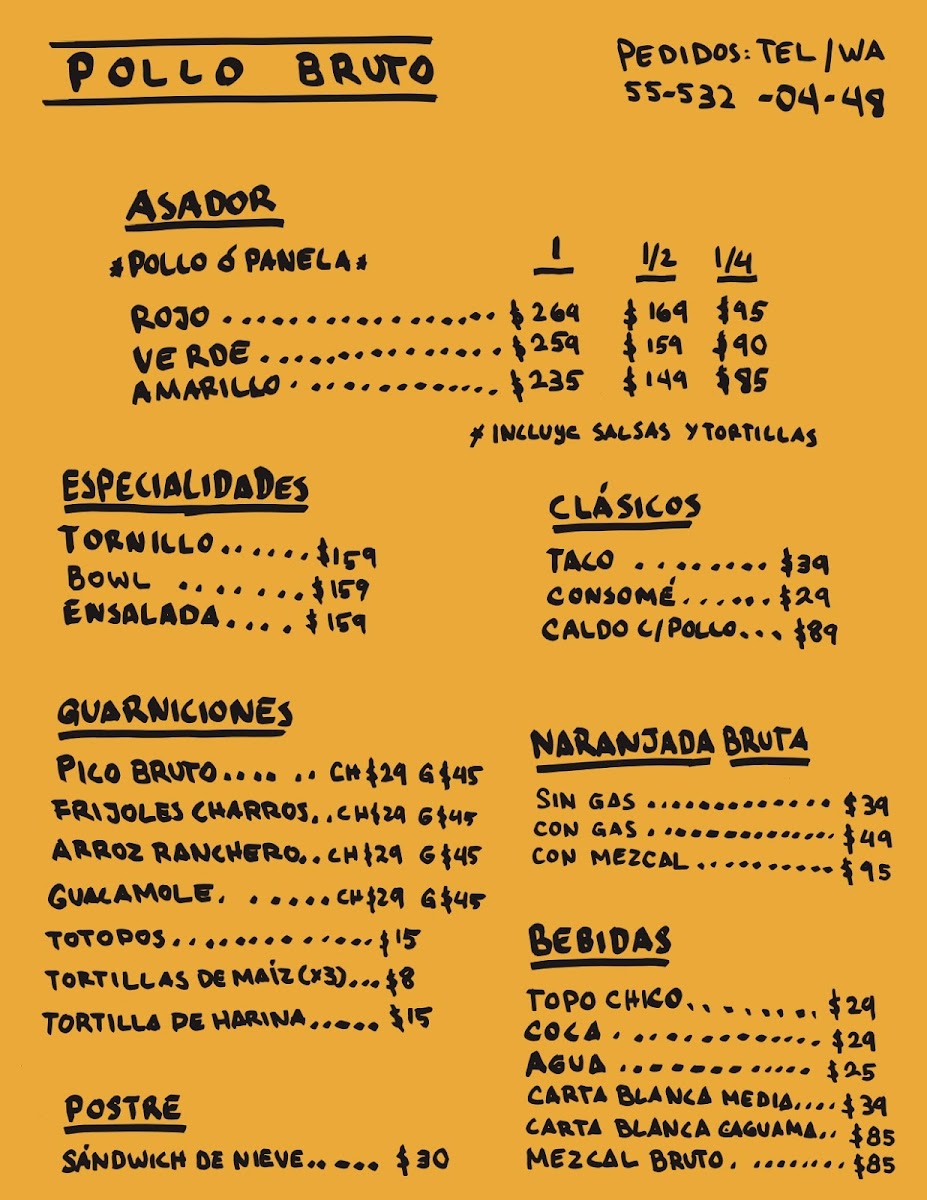 POLLO BRUTO
PEDIDOS: TEL/WA
55-532-04-48
ASADOR
*POLLO Ó PANELA* 1 1/2 1/4
ROJO .................. $269 $169 $95
VERDE ................. $259 $159 $90
AMARILLO .............. $235 $149 $85
* INCLUYE SALSAS Y TORTILLAS
ESPECIALIDADES
TORNILLO...... $159
BOWL ...... $159
ENSALADA.... $159
CLÁSICOS
TACO ........ $39
CONSOMÉ...... $29
CALDO C/POLLO... $89
GUARNICIONES
PICO BRUTO.... .. CH $29 G $45
FRIJOLES CHARROS.. CH $29 G $45
ARROZ RANCHERO.. CH $29 G $45
GUACAMOLE. ..... CH $29 G $45
TOTOPOS............. $15
TORTILLAS DE MAÍZ (X3)... $8
TORTILLA DE HARINA..... $15
POSTRE
SÁNDWICH DE NIEVE..... $30
NARANJADA BRUTA
SIN GAS .............. $39
CON GAS .............. $49
CON MEZCAL ........... $95
BEBIDAS
TOPO CHICO........ $29
COCA ............. $29
AGUA ............ $25
CARTA BLANCA MEDIA.... $39
CARTA BLANCA CAGUAMA.. $85
MEZCAL BRUTO. ........ $85